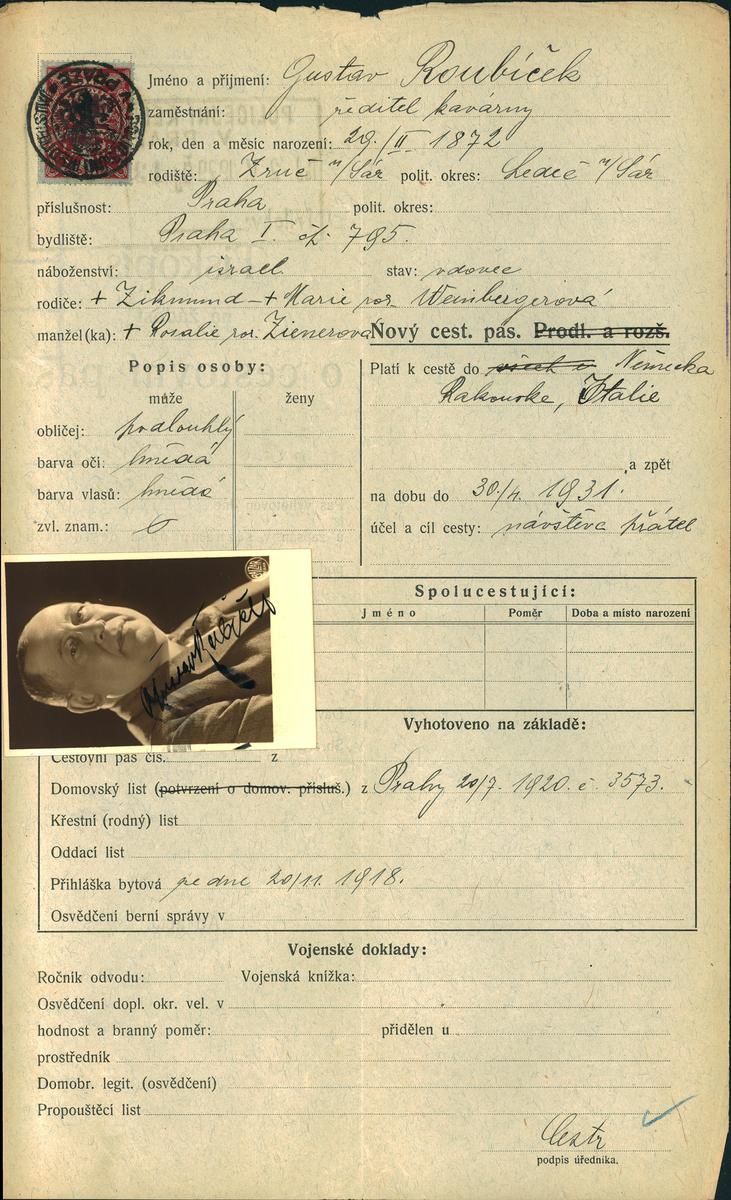 Jméno a příjmení: Gustav Roubíček
zaměstnání: ředitel kavárny
rok, den a měsíc narození: 29./II 1872
rodiště: Zruč n/Sáz polit. okres: Ledeč n/Sáz
příslušnost: Praha polit. okres:
bydliště: Praha I. čp. 795.
náboženství: israel. stav: vdovec
rodiče: + Zikmund - + Marie roz. Weinbergerová
manžel(ka): + Rosalie roz. Zienerová
Nový cest. pas. Prodl. a rozš.
Popis osoby:
muže ženy
obličej: podlouhlý
barva očí: hnědá
barva vlasů: hnědá
zvl. znam.:
Platí k cestě do všech e. Německa
Rakouska, Italie
a zpět
na dobu do 30./4. 1931.
účel a cíl cesty: návštěva přátel
Spolucestující:
Jméno Poměr Doba a místo narození
Vyhotoveno na základě:
Cestovní pas čís. z
Domovský list (potvrzení o domov. přísluš.) z Prahy 20/7. 1920. č. 3573.
Křestní (rodný) list
Oddací list
Přihláška bytová ze dne 20/11. 1918.
Osvědčení berní správy v
Vojenské doklady:
Ročník odvodu: Vojenská knížka:
Osvědčení dopl. okr. vel. v
hodnost a branný poměr: přidělen u
prostředník
Domobr. legit. (osvědčení)
Propouštěcí list
podpis úředníka.